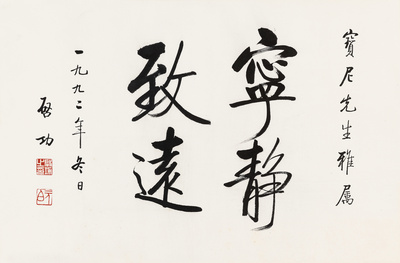 寶尼先生雅屬
寧靜
致遠
一九九二年冬日
啓功